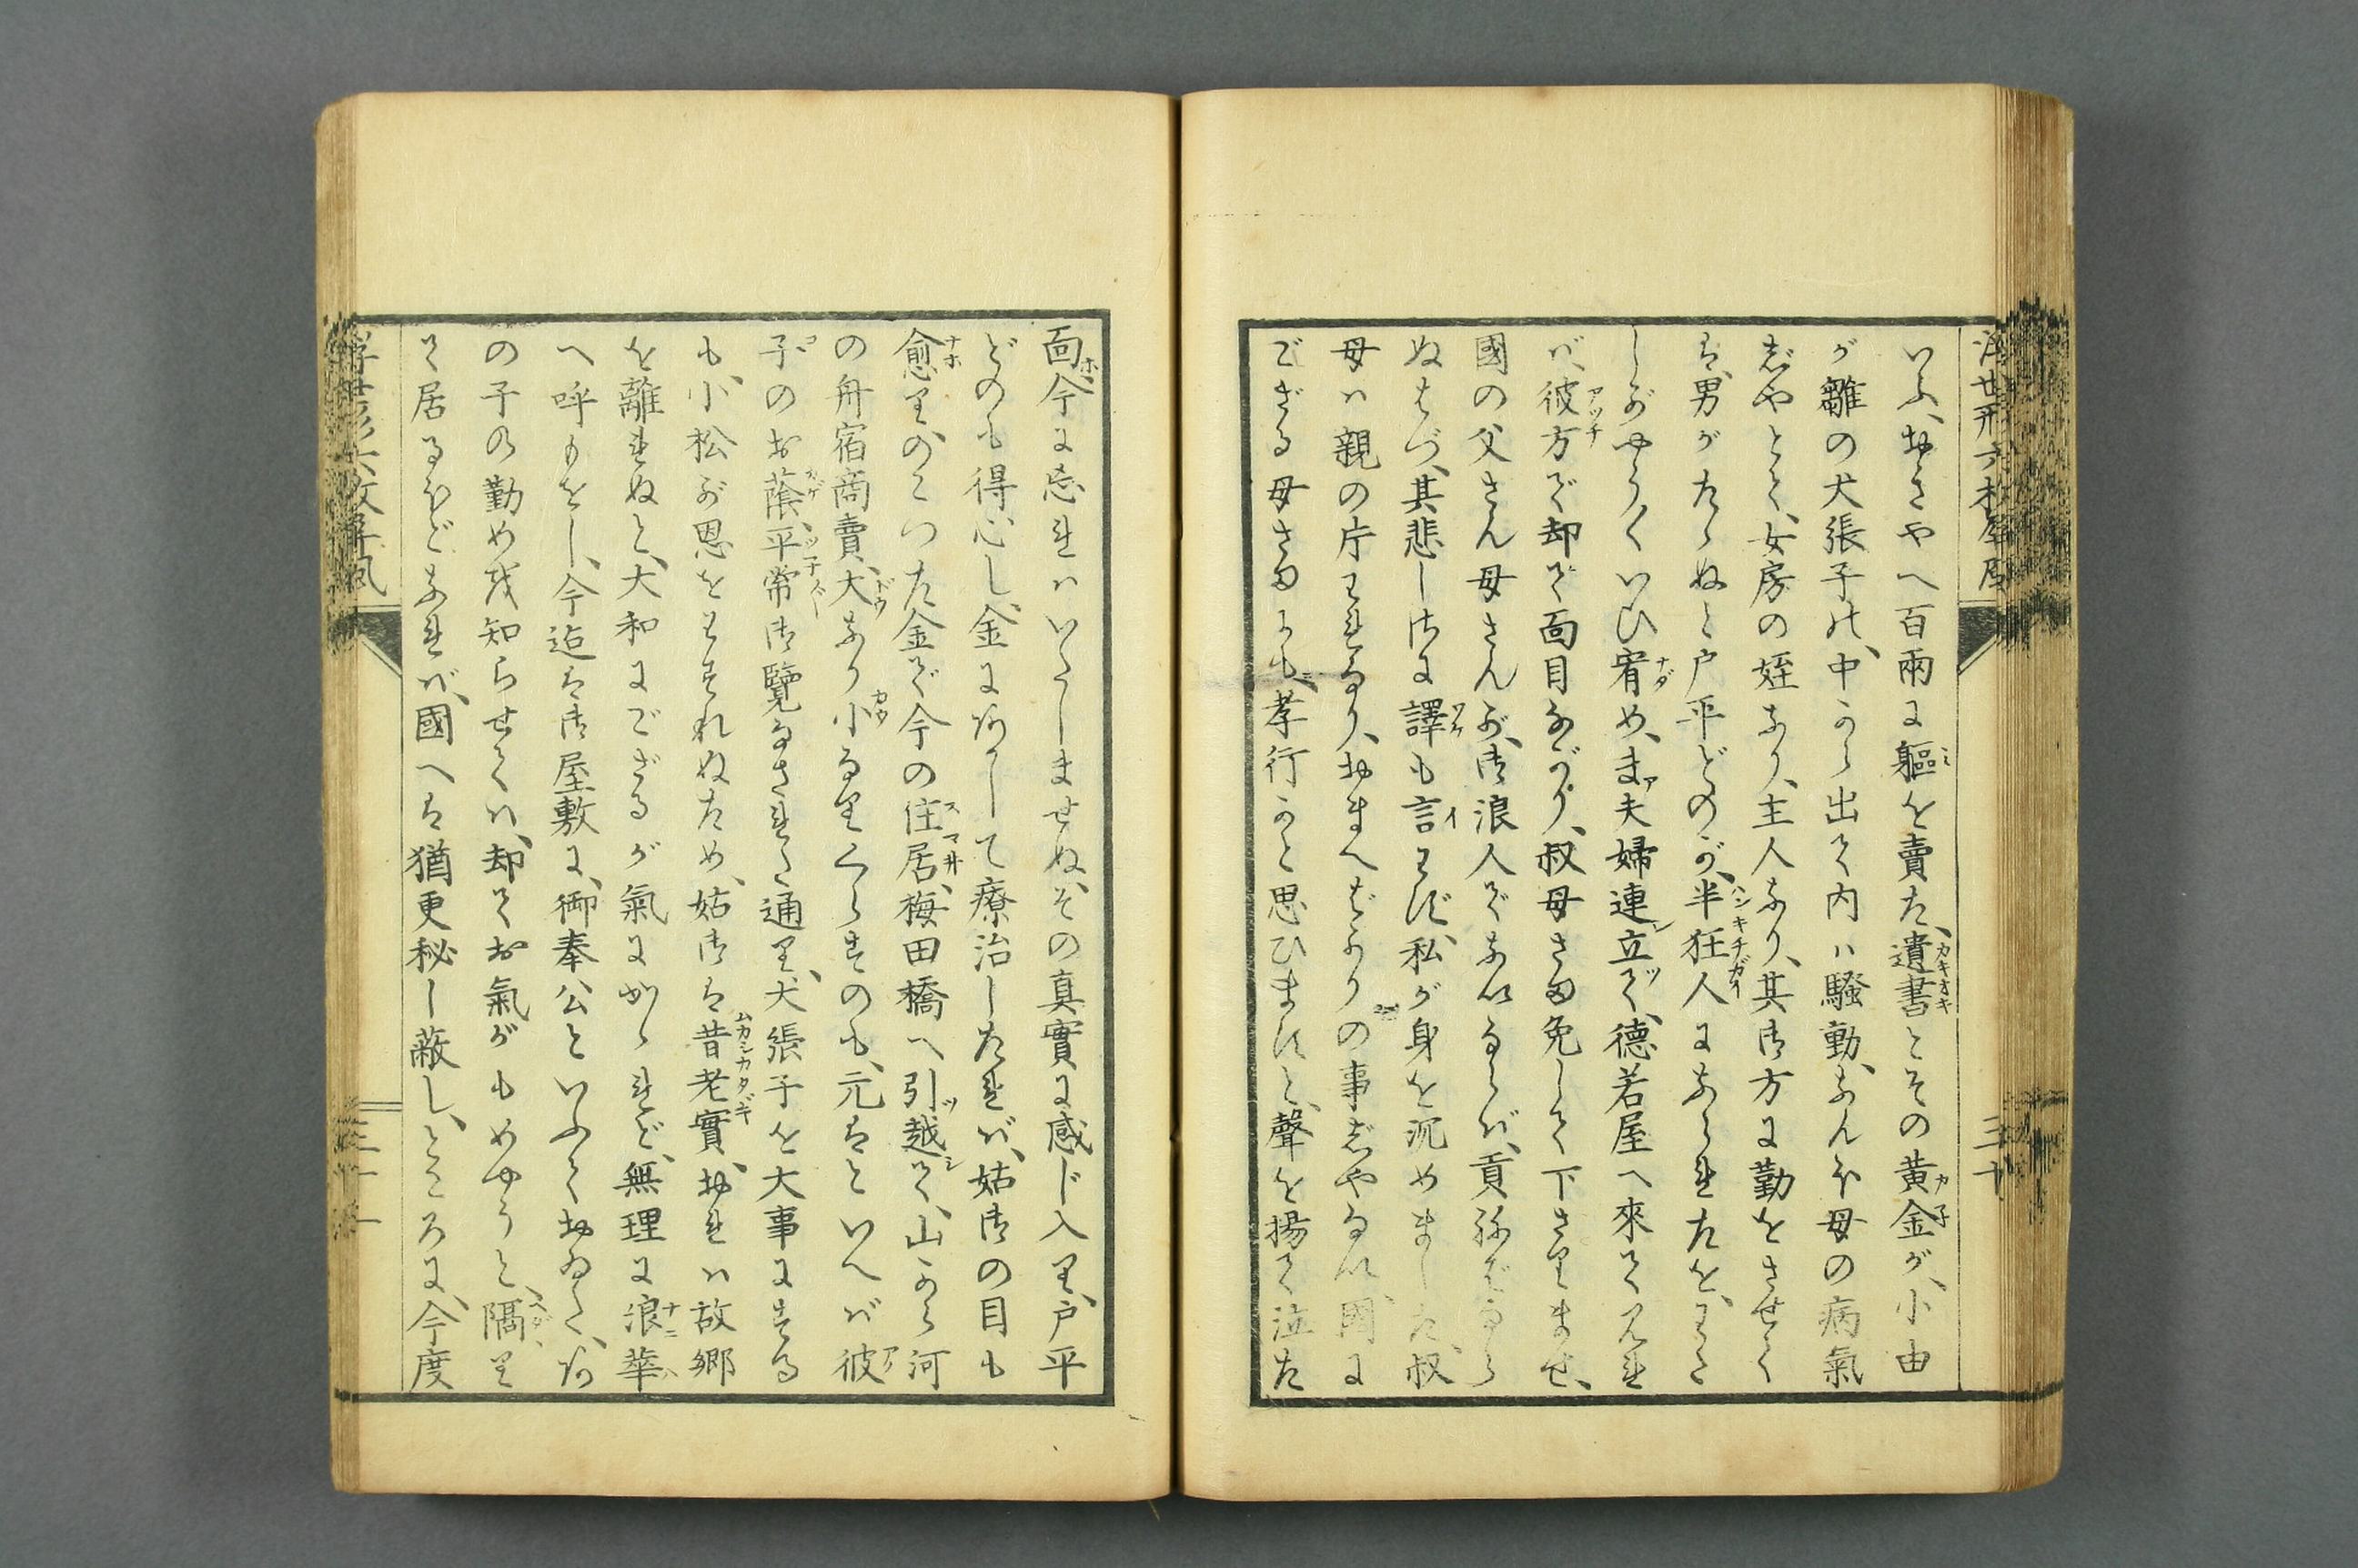 いふ、おさやへ百兩に軀を賣た、遺書とその黄金が、小由
が離の犬張子の、中から出て内ハ騒動、なんぼ母の病氣
じやとて、女房の姪なり、主人なり、其御方に勤をさせて
は、男がたゝぬと戸平どのが、半狂人になられたを、わた
しがやう〳〵いひ宥め、ま夫婦連立て、德若屋へ來て見れ
ば、彼方で却て面目ながり、叔母さま免して下さりませ、
國の父さん母さんが、御浪人でないならば、貢ねばなら
ぬはづ、其悲しさに譯も言はず、私が身を沉めました、叔
母ハ親の片われなり、おまへばかりの事じやない、國に
ござる母さまにも、孝行かと思ひますと、聲を揚て泣た
面、今に忘れハいたしませぬ、その真實に感じ入り、戸平
どのも得心し、金にあかして療治したれば、姑御の目も
愈り、のこつた金で今の住居、梅田橋へ引越て、山から河
の舟宿商賣、大なり小なりくらすのも、元はといへば彼
子のお蔭、平常御覽なされた通り、犬張子を大事にする
も、小松が恩をわすれぬため、姑御は昔老實、おれハ故郷
を離れぬと、大和にござるが氣にかゝれど、無理に浪華
へ呼もをし、今迄は御屋敷に、御奉公といふておゐた、あ
の子の勤め茂知らせてハ、却てお氣がもめやうと、隔り
て居るほどなれば、國へは猶更秘し蔽し、ところに、今度
三十